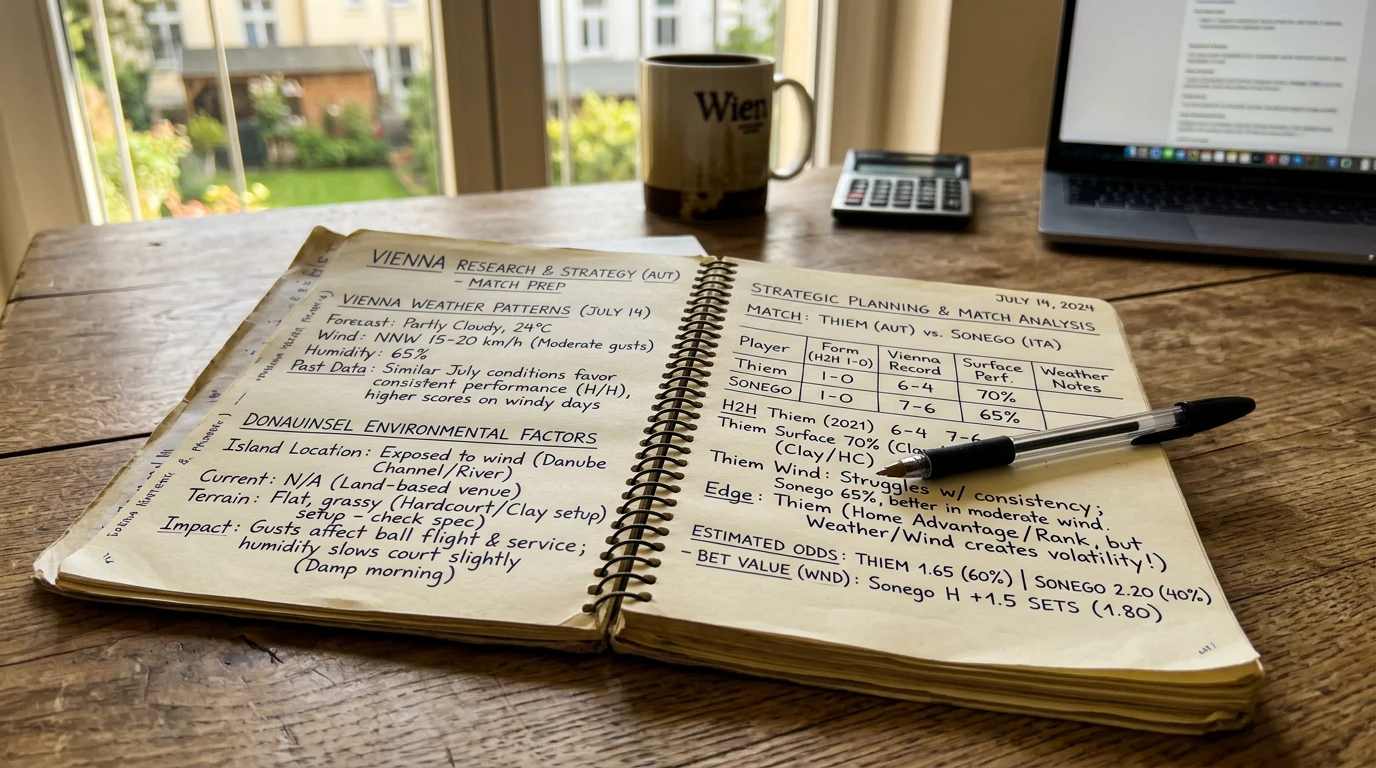 Wien
VIENNA RESEARCH & STRATEGY (AUT)
- MATCH PREP
VIENNA WEATHER PATTERNS (JULY 14)
Forecast: Partly Cloudy, 24°C
Wind: NNW 15-20 km/h (Moderate gusts)
Humidity: 65%
Past Data: Similar July conditions favor
consistent performance (H/H),
higher scores on windy days
DONAUINSEL ENVIRONMENTAL FACTORS
Island Location: Exposed to wind (Danube
Channel/River)
Current: N/A (Land-based venue)
Terrain: Flat, grassy (Hardcourt/Clay setup)
setup - check spec)
Impact: Gusts affect ball flight & service;
humidity slows court slightly
(Damp morning)
JULY 14, 2024
STRATEGIC PLANNING & MATCH ANALYSIS
MATCH: THIEM (AUT) vs. SONEGO (ITA)
Player Form (H2H 1-0) Vienna Record Surface Perf. Weather Notes
Thiem 1-0 6-4 70%
SONEGO 1-0 7-6 65%
H2H Thiem (2021) 6-4 7-6
Thiem Surface 70% (Cla
(Clay/HC)
Thiem Wind: Struggles w/ consistency;
Sonego 65%, better in moderate wind.
Edge: Thiem (Home Advantage/Rank, but
Weather/Wind creates volatility!)
ESTIMATED ODDS: THIEM 1.65 (60%) | SONEGO 2.20 (40%)
- BET VALUE (WND): Sonego H +1.5 SETS (1.80)